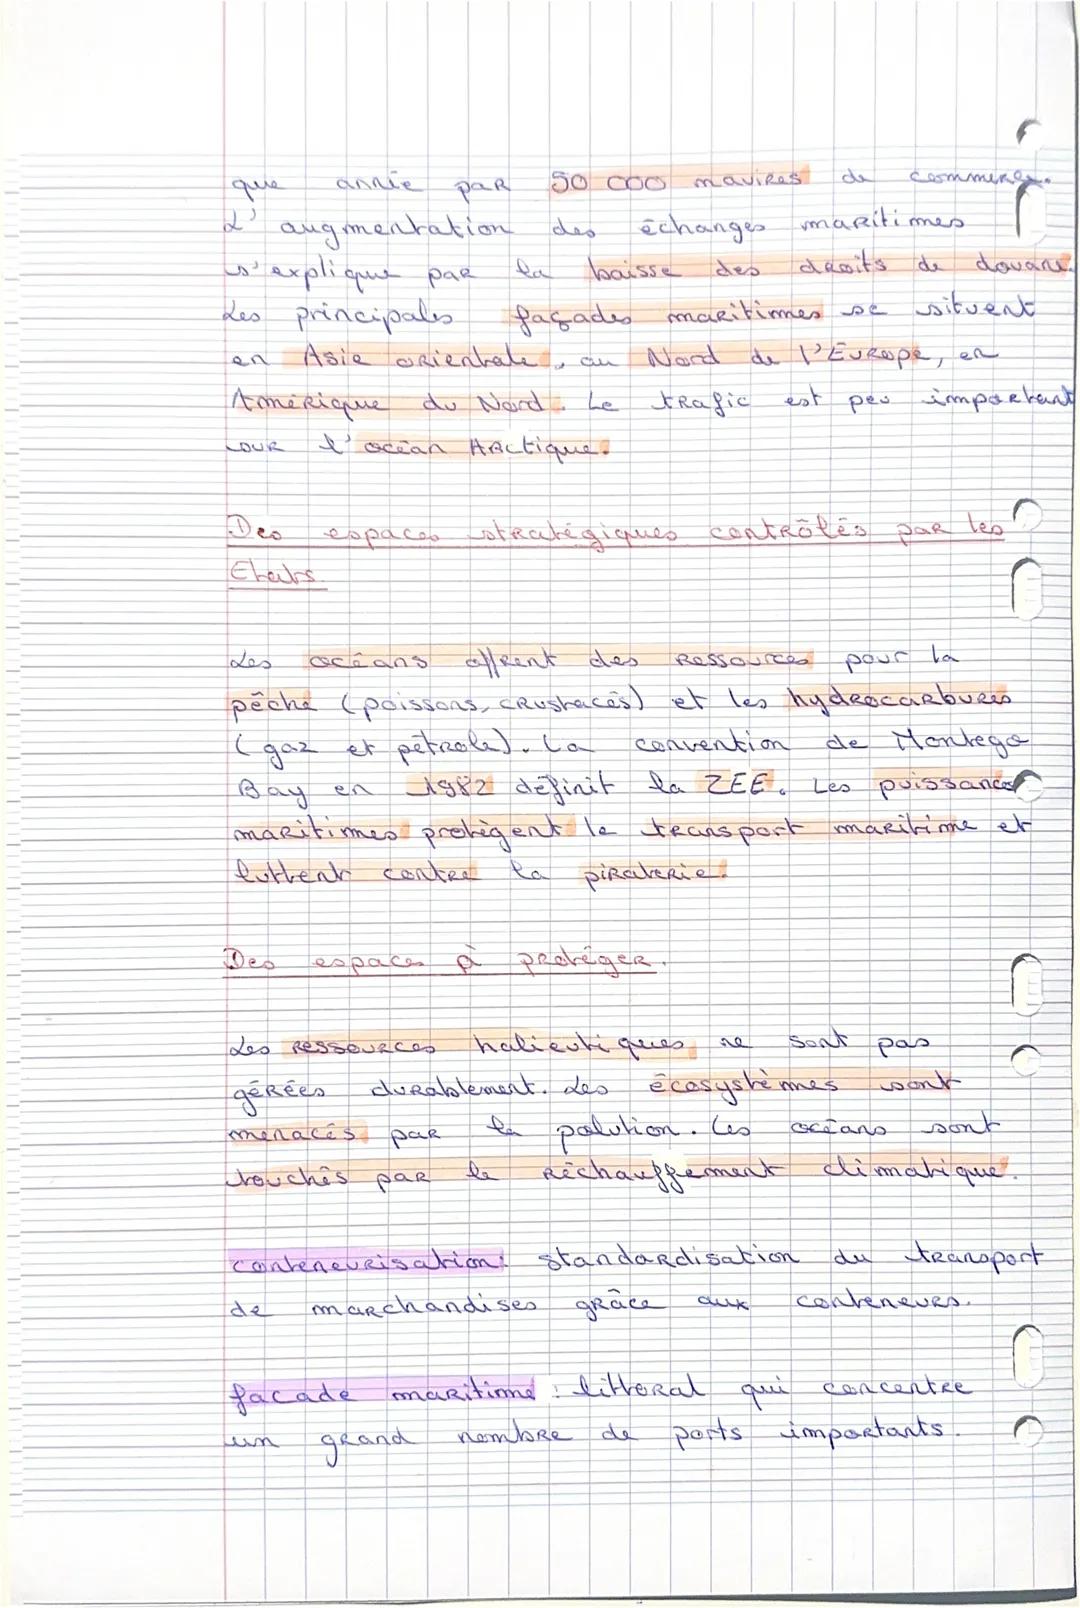 que année par 50 000 navires de commerce.
L'augmentation des échanges maritimes
s'explique par la baisse des droits de douane.
Les principales façades maritimes se situent
en Asie orientale, au Nord de l'Europe, en
Amérique du Nord. Le trafic est peu important
sur l'océan Arctique.
Des espaces stratégiques contrôlés par les
Etats.
Les océans offrent des ressources pour la
pêche (poissons, crustacés) et les hydrocarbures
(gaz et pétrole). La convention de Montego
Bay en 1982 définit la ZEE. Les puissances
maritimes protègent le transport maritime et
luttent contre la piraterie.
Des espaces à protéger.
Les ressources halieutiques ne sont pas
gérées durablement. Les écosystèmes sont
menacés par la polution. Les océans sont
touchés par le réchauffement climatique.
conteneurisation: standardisation du transport
de marchandises grâce aux conteneurs.
facade maritime : littoral qui concentre
un grand nombre de ports importants.